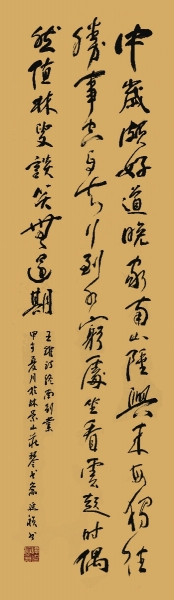 中歲頗好道晚家南山陲興来每獨往
勝事空自知行到水窮處坐看雲起时偶
然值林叟談笑無還期
王維詩終南别業
甲子夏月於林景山莊